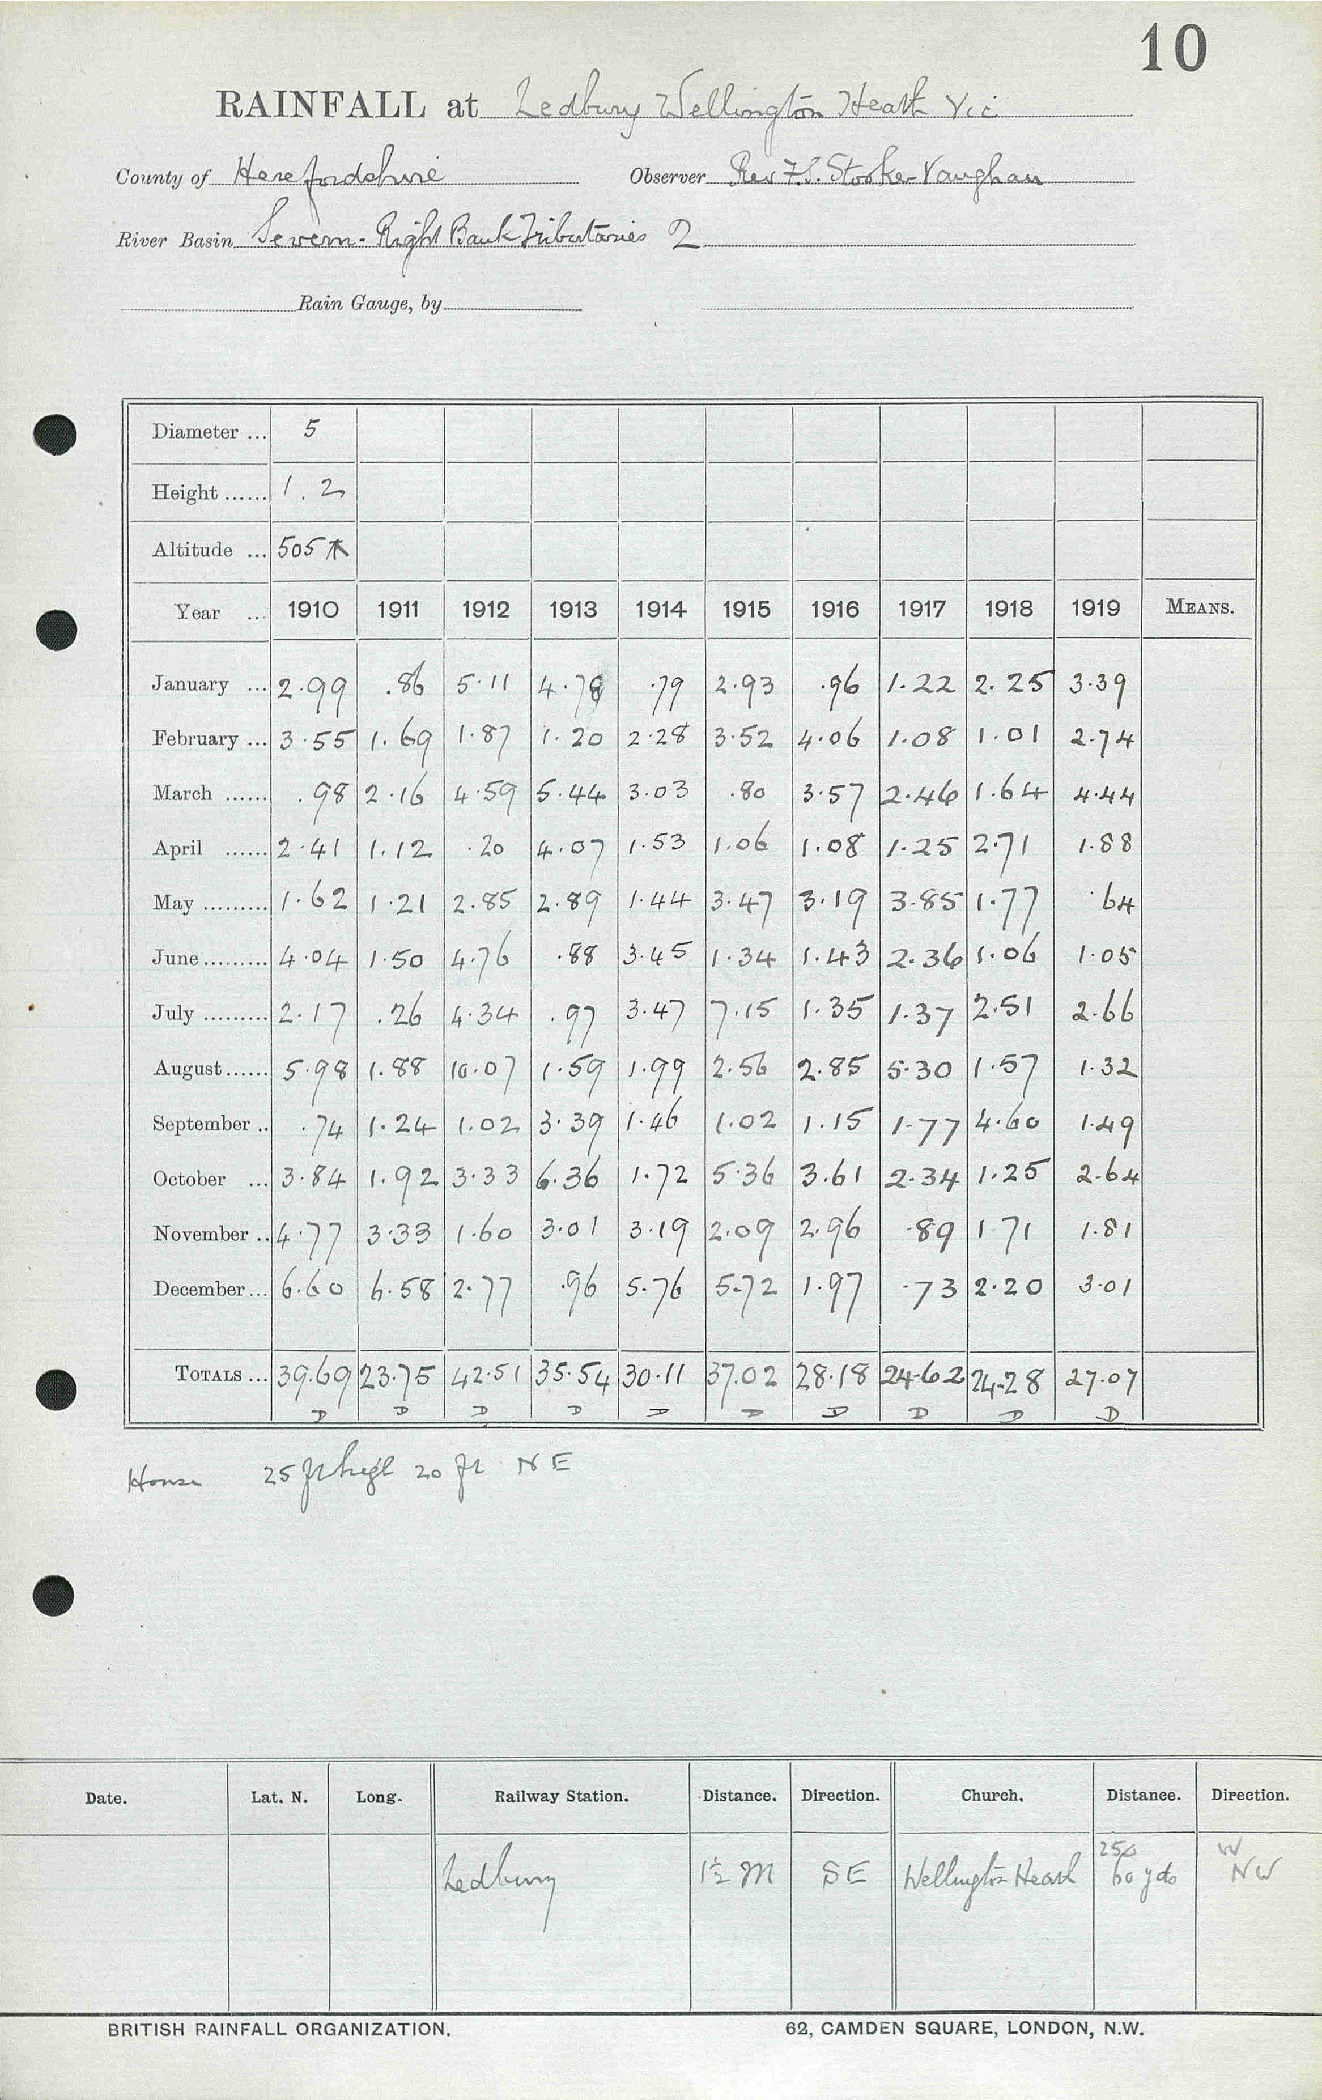 10
RAINFALL at Ledbury Wellington Heath Vic
County of Herefordshire Observer Rev F.S. Stooke-Vaughan
River Basin Severn - Right Bank Tributaries 2
Rain Gauge, by
Diameter ... 5
Height ...... 1 . 2
Altitude ... 505
Year ... 1910 1911 1912 1913 1914 1915 1916 1917 1918 1919 MEANS.
January ... 2.99 .86 5.11 4.78 .79 2.93 .96 1.22 2.25 3.39
February ... 3.55 1.69 1.87 1.20 2.28 3.52 4.06 1.08 1.01 2.74
March ...... .98 2.16 4.59 5.44 3.03 .80 3.57 2.46 1.64 4.44
April ...... 2.41 1.12 .20 4.07 1.53 1.06 1.08 1.25 2.71 1.88
May ......... 1.62 1.21 2.85 2.89 1.44 3.47 3.19 3.85 1.77 .64
June ......... 4.04 1.50 4.76 .88 3.45 1.34 1.43 2.36 1.06 1.05
July ......... 2.17 .26 4.34 .97 3.47 7.15 1.35 1.37 2.51 2.66
August ...... 5.98 1.88 10.07 1.59 1.99 2.56 2.85 5.30 1.57 1.32
September .. .74 1.24 1.02 3.39 1.46 1.02 1.15 1.77 4.60 1.49
October ... 3.84 1.92 3.33 6.36 1.72 5.36 3.61 2.34 1.25 2.64
November .. 4.77 3.33 1.60 3.01 3.19 2.09 2.96 .89 1.71 1.81
December ... 6.60 6.58 2.77 .96 5.76 5.72 1.97 .73 2.20 3.01
TOTALS ... 39.69 23.75 42.51 35.54 30.11 37.02 28.18 24.62 24.28 27.07
D D D D D D D D D D
House 25 ft high 20 ft NE
Date. Lat. N. Long. Railway Station. Distance. Direction. Church. Distance. Direction.
250 W
Ledbury 1½ M SE Wellington Heath 60 yds NW
BRITISH RAINFALL ORGANIZATION. 62, CAMDEN SQUARE, LONDON, N.W.